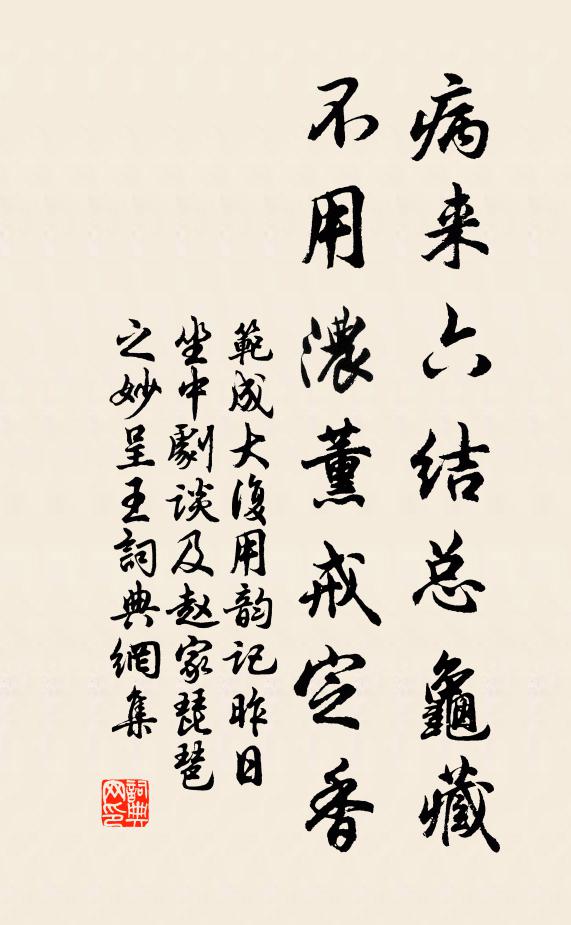 病来六结总龜藏
不用濃薰戒定香
範成大復用韵記昨日
坐中劇谈及赵家琵琶
之妙呈王詞典網集
詞典網印